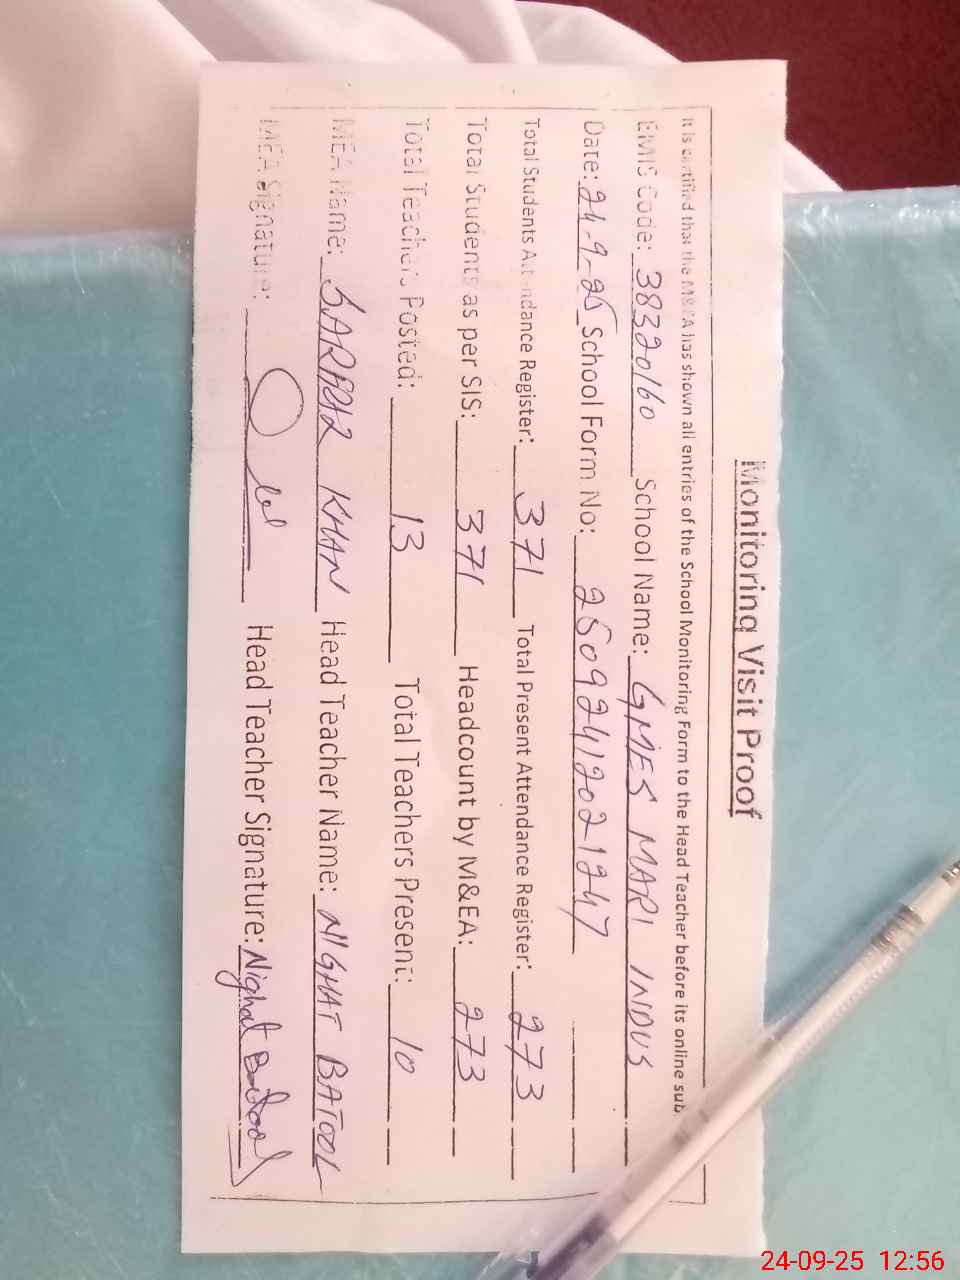 Monitoring Visit Proof
It is certified that the M&EA has shown all entries of the School Monitoring Form to the Head Teacher before its online sub
EMIS Code: 38320160 School Name: GMES MARI INDUS
Date: 24-9-25 School Form No: 25092412021247
Total Students Attendance Register: 371 Total Present Attendance Register: 273
Total Students as per SIS: 371 Headcount by M&EA: 273
Total Teachers Posted: 13 Total Teachers Present: 10
MEA Name: SARFRAZ KHAN Head Teacher Name: NIGHAT BATOOL
MEA Signature: Head Teacher Signature: Nighat Batool
24-09-25 12:56